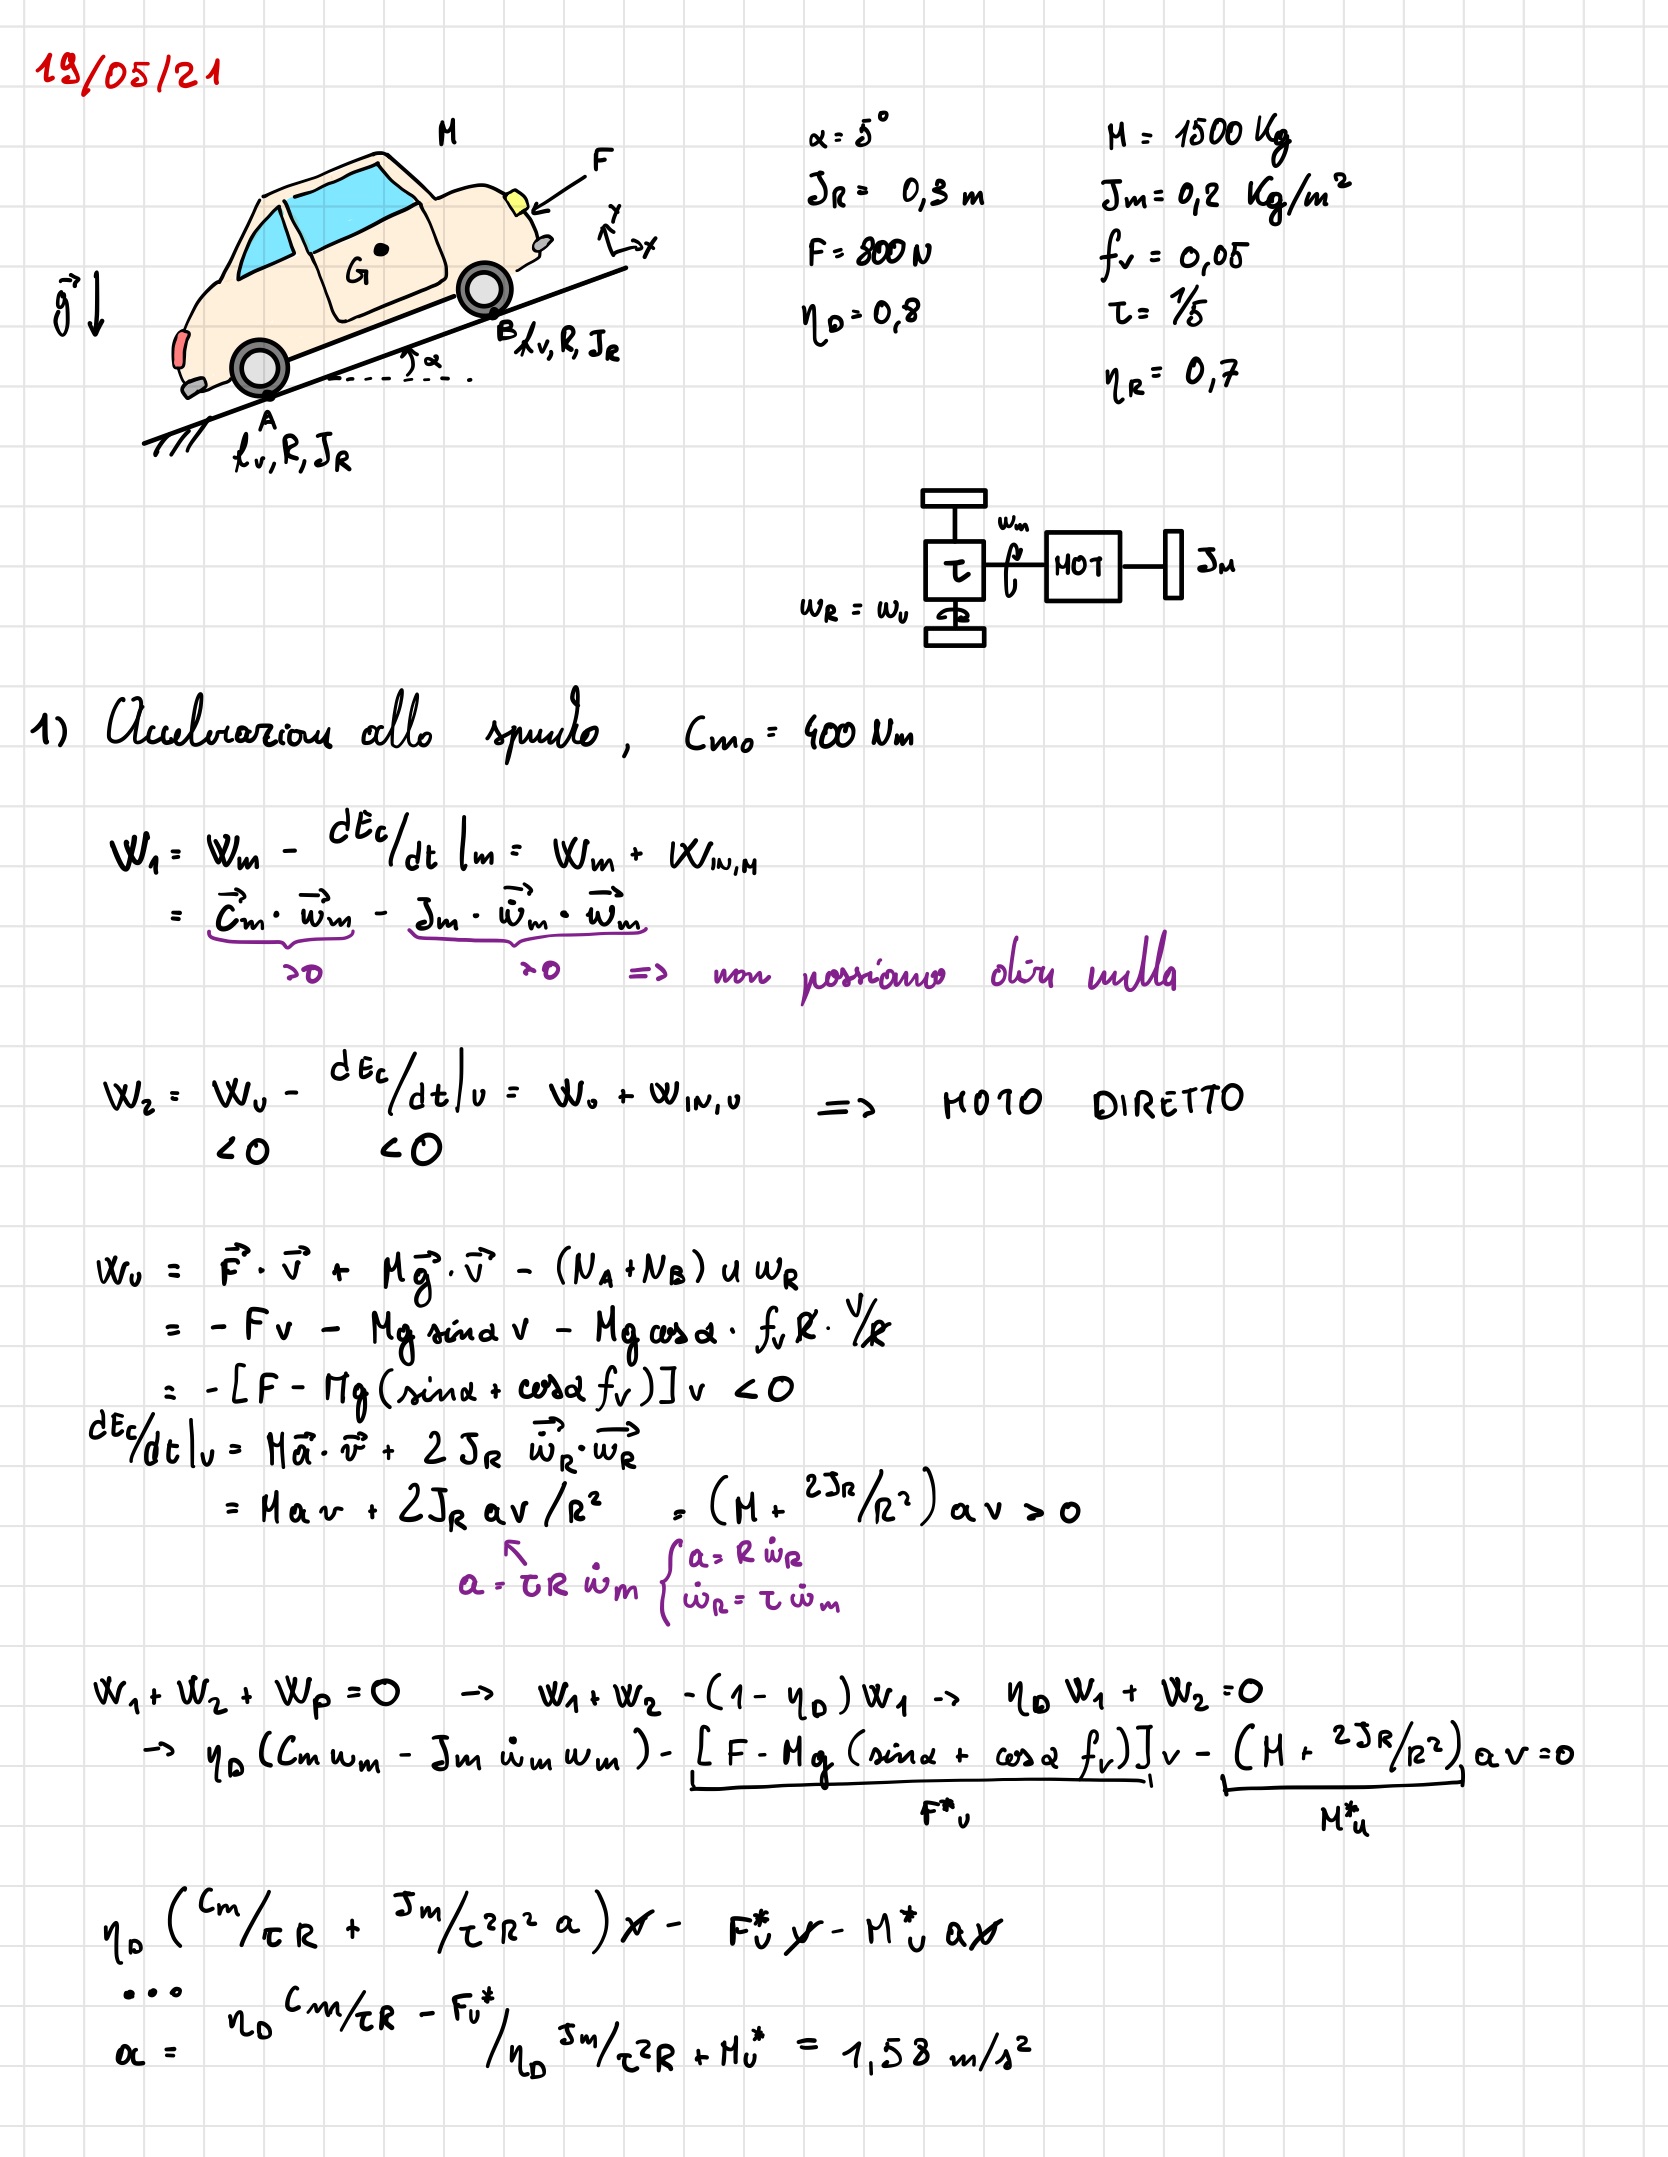 19/05/21
M
F
Y
X
G
g
α
B
fv, R, JR
A
fv, R, JR
α = 5°
JR = 0,3 m
F = 800 N
ηD = 0,8
M = 1500 Kg
Jm = 0,2 Kg/m²
fv = 0,05
τ = 1/5
ηR = 0,7
ωm
τ
MOT
JM
ωR = ωU
1) Accelerazione allo spunto, Cm0 = 400 Nm
W1 = Wm - dEc/dt|m = Wm + WIN,M
= C⃗m · ω⃗m - Jm · ω̇⃗m · ω⃗m
>0 >0 => non possiamo dire nulla
W2 = WU - dEc/dt|U = WU + WIN,U => MOTO DIRETTO
<0 <0
WU = F⃗ · v⃗ + Mg⃗ · v⃗ - (NA + NB) u ωR
= - Fv - Mg sinα v - Mg cosα · fv R · V/R
= - [F - Mg (sinα + cosα fv)] v < 0
dEc/dt|U = Ma⃗ · v⃗ + 2 JR ω̇⃗R · ω⃗R
= Mav + 2JR av/R² = (M + 2JR/R²) a v > 0
a = τR ω̇m { a = R ω̇R
ω̇R = τ ω̇m
W1 + W2 + Wp = 0 → W1 + W2 - (1 - ηD) W1 → ηD W1 + W2 = 0
→ ηD (Cm ωm - Jm ω̇m ωm) - [F - Mg (sinα + cosα fv)] v - (M + 2JR/R²) a v = 0
F*U M*u
ηD (Cm/τR + Jm/τ²R² a) v - F*U v - M*U a v
...
a = ηD Cm/τR - FU* / ηD Jm/τ²R + MU* = 1,58 m/s²